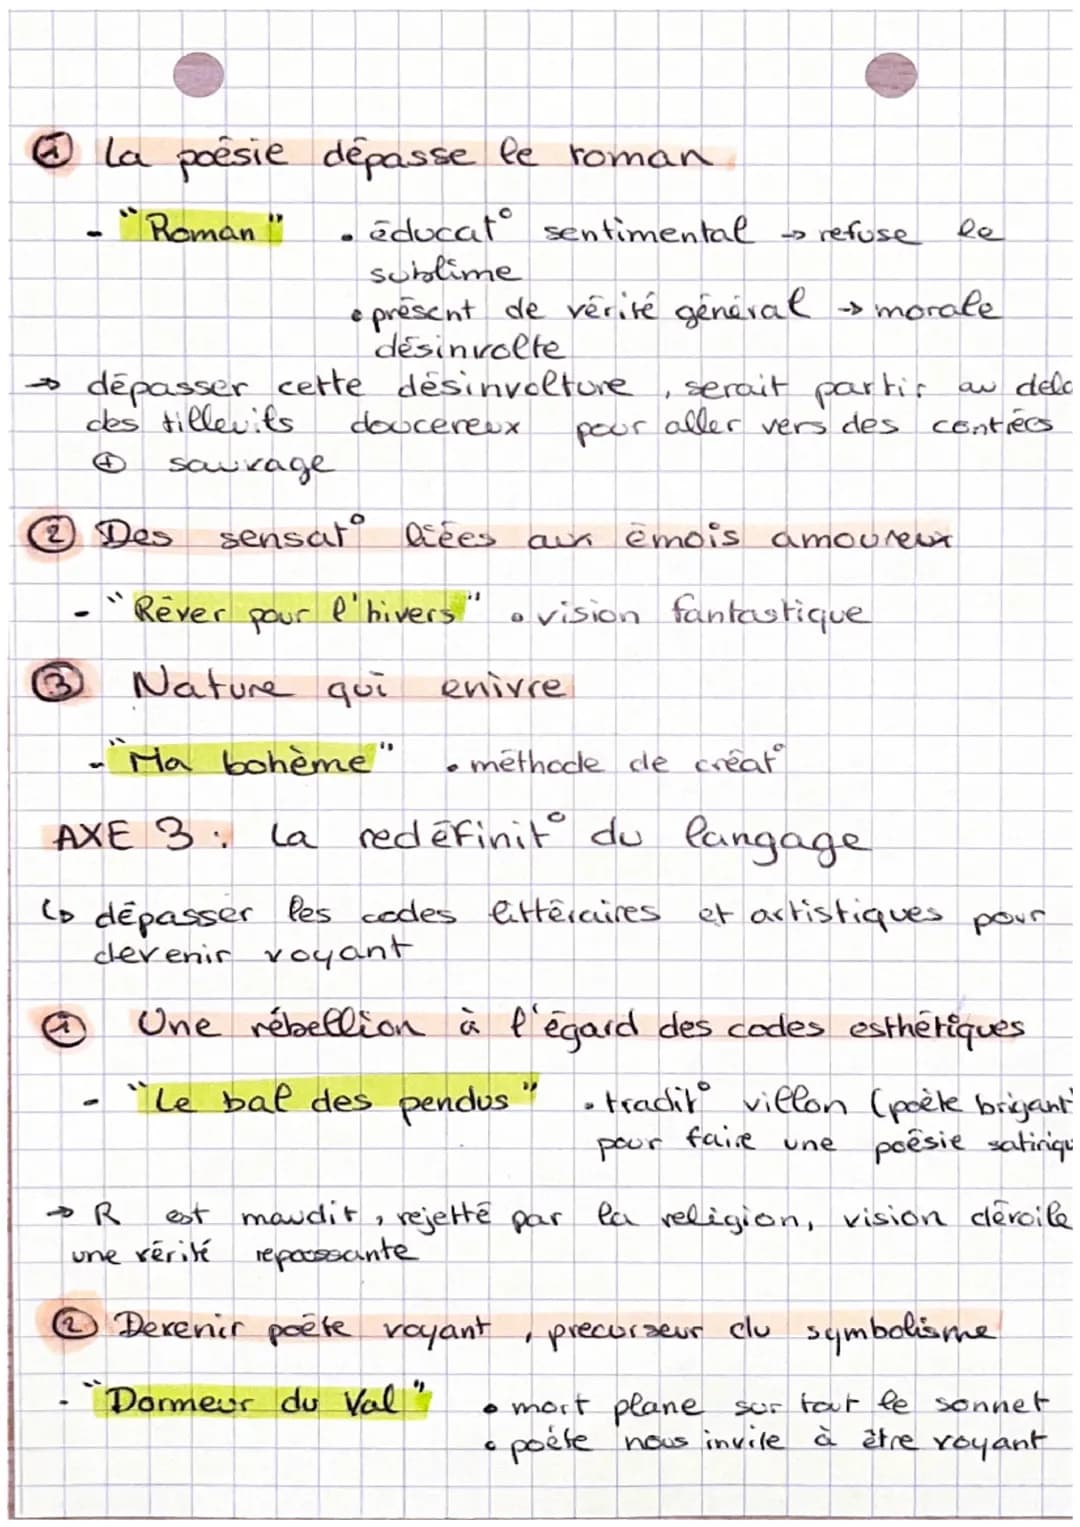 ① La poésie dépasse le roman
- "Roman" • éducat° sentimental → refuse le
sublime
• présent de vérité général → morale
désinvolte
→ dépasser cette désinvolture, serait partir au delà
des tilleuils doucereux pour aller vers des contrées
⊕ sauvage
② Des sensat° liées aux émois amoureux
- "Rêver pour l'hivers" • vision fantastique
③ Nature qui enivre
- "Ma bohème" • méthode de créat°
AXE 3 : La redéfinit° du langage
↳ dépasser les codes littéraires et artistiques pour
devenir voyant
① Une rébellion à l'égard des codes esthétiques
- "Le bal des pendus" • tradit° villon (poète brigant)
pour faire une poésie satiriqu
→ R est maudit, rejetté par la religion, vision dévoile
une vérité repoussante
② Devenir poète voyant, precurseur du symbolisme
- "Dormeur du Val" • mort plane sur tout le sonnet
• poète nous invite à être voyant